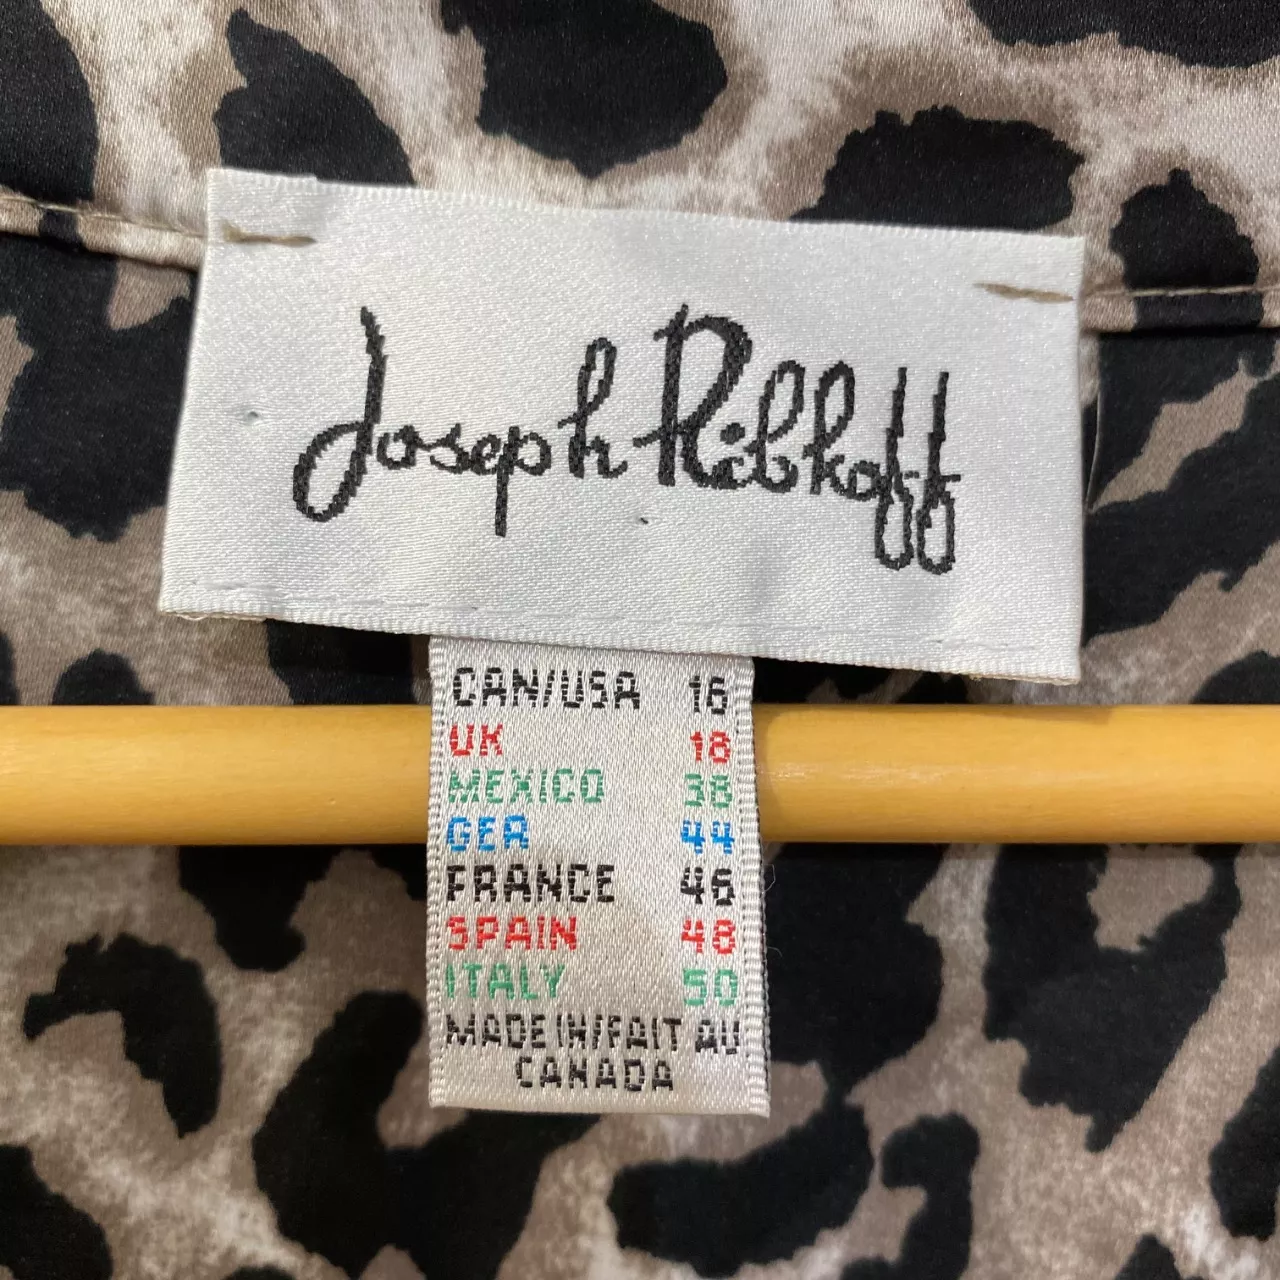 Joseph Ribkoff
CAN/USA 16
UK 18
MEXICO 38
GER 44
FRANCE 46
SPAIN 48
ITALY 50
MADE IN/FAIT AU
CANADA